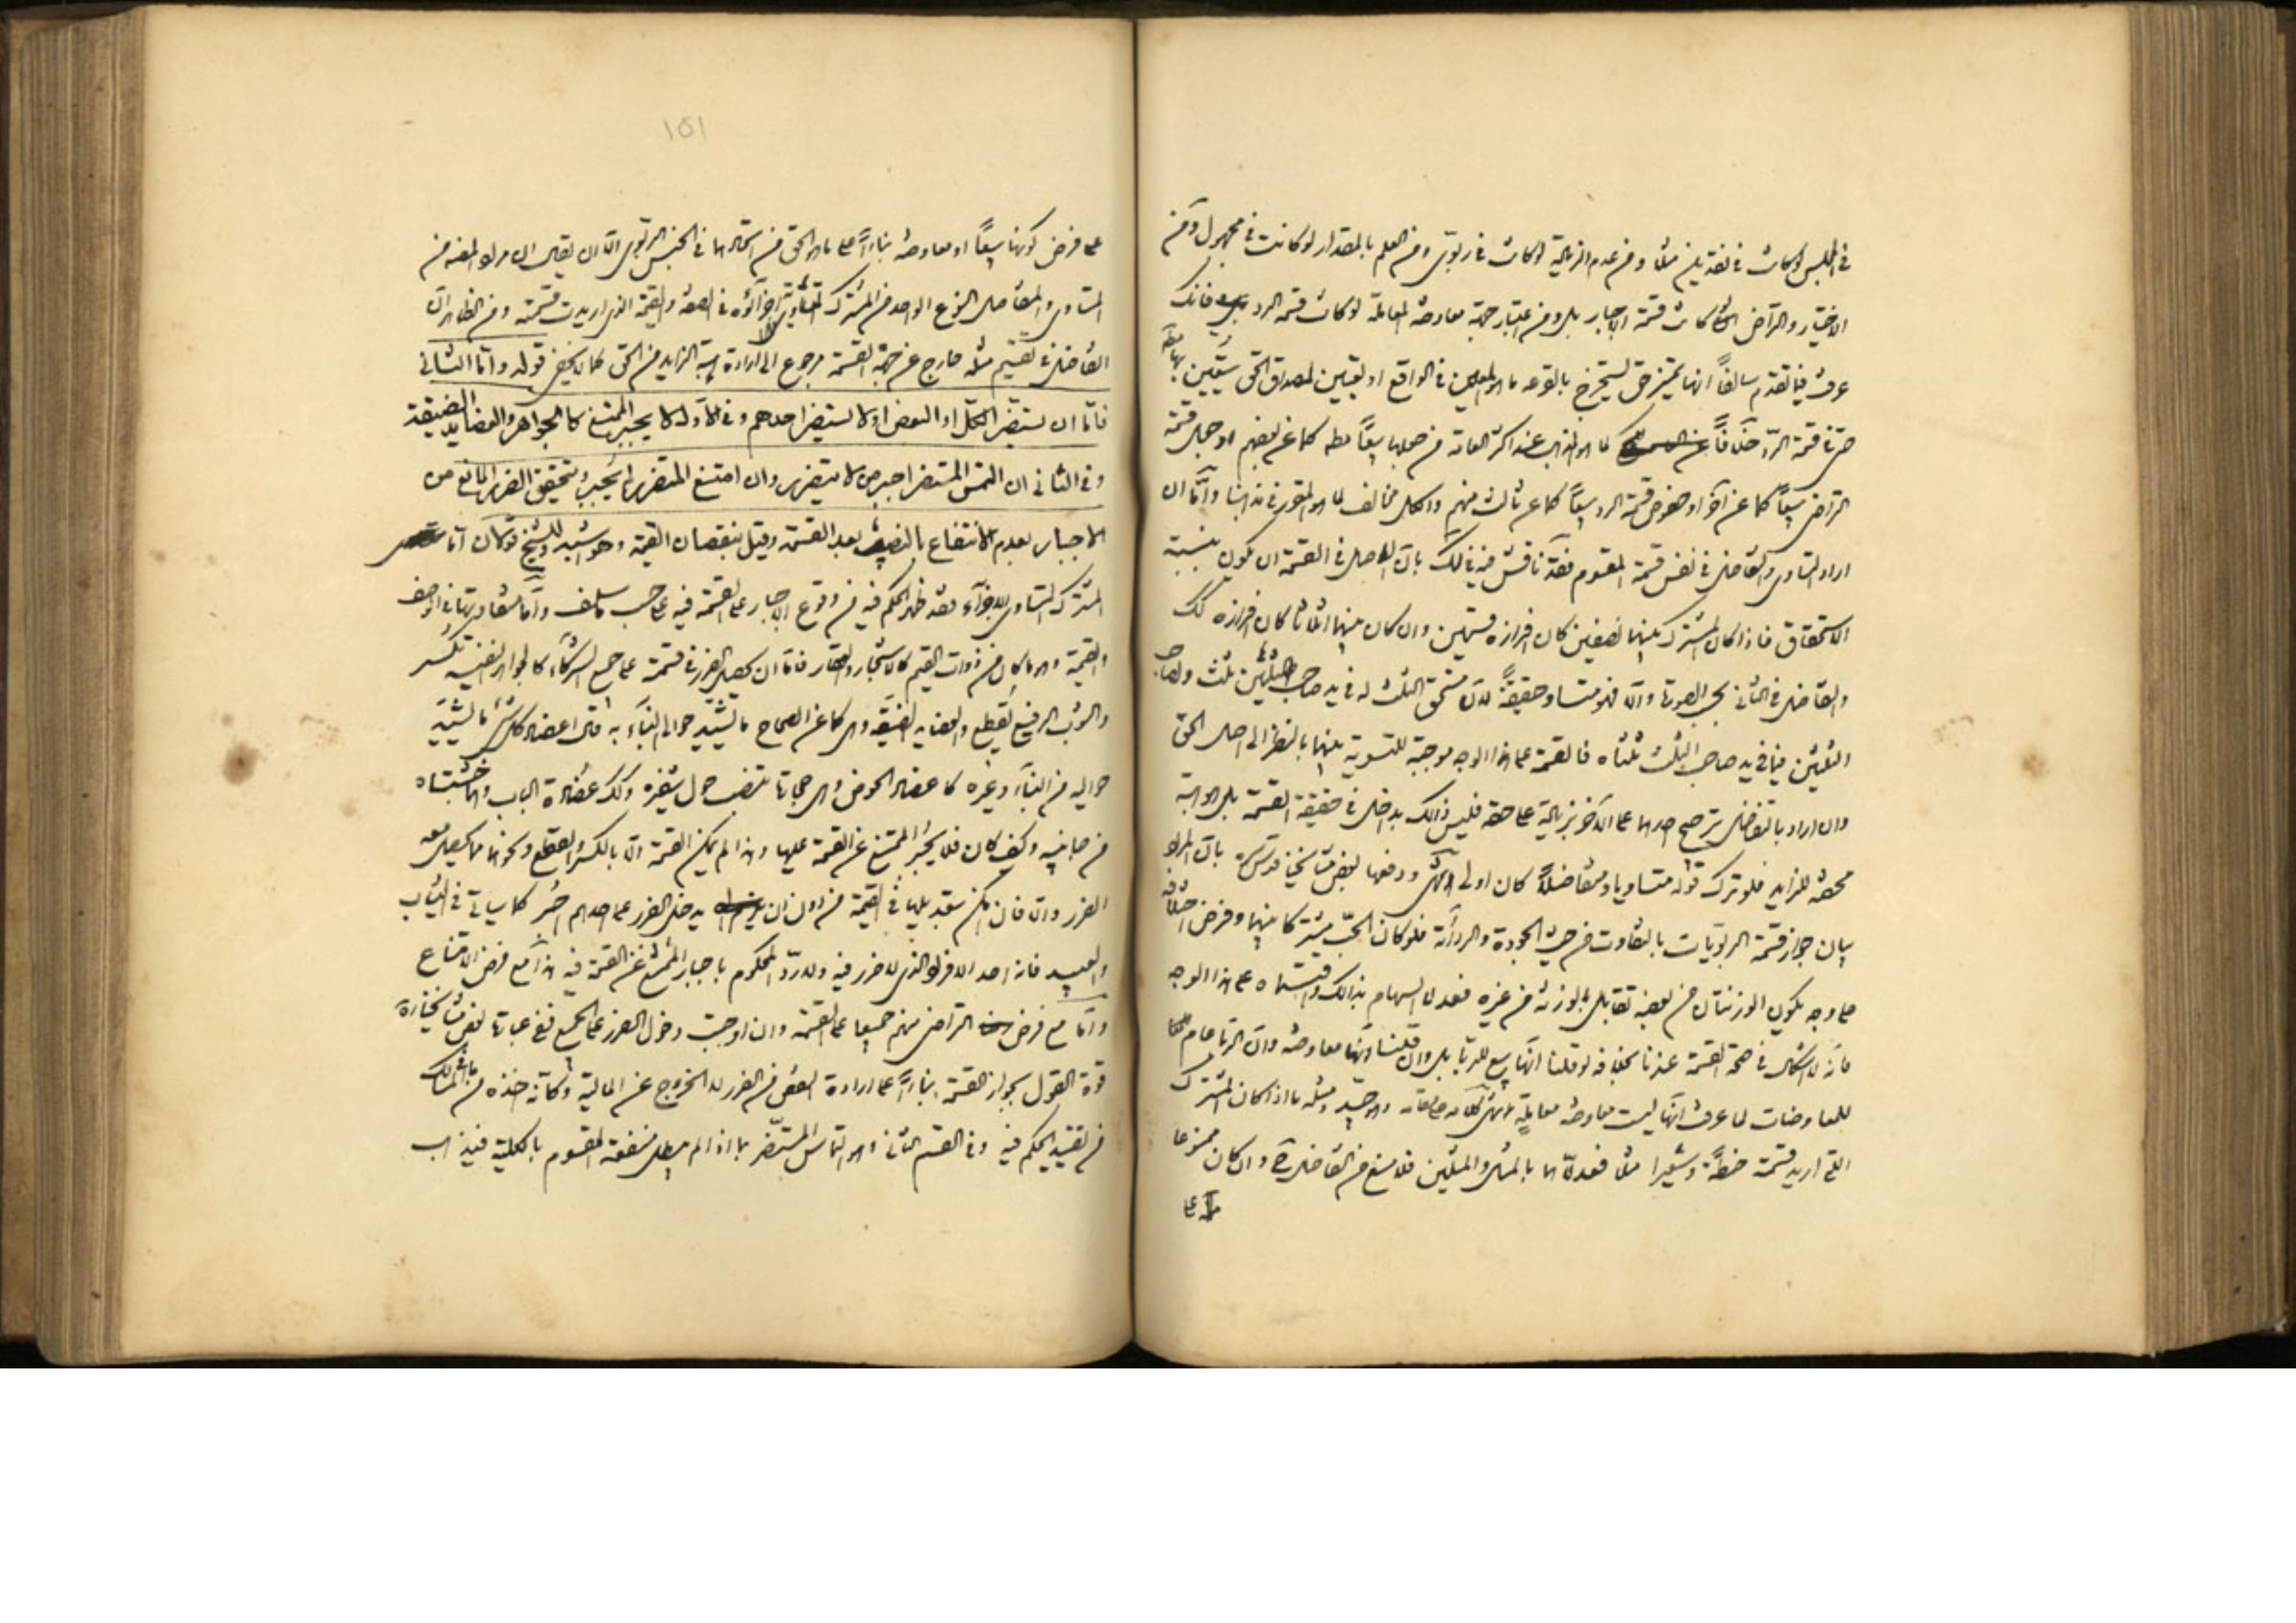 في المجلس لو كانت في نقدين مثلا ومن عدم الزيادة لو كانت في ربوي ومن العلم بالمقدار لو كانت في مجهول ومن
الاختيار والتراضي كانت قسمة الاجبار بل ومن اعتبار جهة معاوضة المعاملة لو كانت قسمة الرد فانك
عرفت فيما تقدم سالفا انها تميز حق يستخرج بالقرعة ما هو المعين في الواقع او تعيين لمصداق الحق يتعين بها
حتى في قسمة الرد خلافا كما هو المذهب عند اكثر العامة من جعلها بيعا مطلقا كما عن بعضهم او جعل قسمة
التراضي بيعا كما عن آخر او خصوص قسمة الرد بيعا كما عن ثالث منهم والكل مخالف لما هو المقرر في مذهبنا واما ان
اراد التساوي والتفاضل في نفس قسمة المقسوم فقد ناقش فيه في لك بان الاصل في القسمة ان يكون بنسبة
الاستحقاق فاذا كان المشترك بينهما نصفين كان افرازه قسمين وان كان بينهما اثلاثا كان افرازه كك
والتفاضل في الثاني بحسب الصورة والا فهو متساو حقيقة لان مستحق الثلث له في يد صاحب الثلثين ثلث ولصاحب
الثلثين فيما في يد صاحب الثلث ثلثاه فالقسمة على هذا الوجه موجبة للتسوية بينهما بالنظر الى اصل الحق
وان اراد بالتفاضل ترجيح احدهما على الآخر بزيادة على حقه فليس ذلك بداخل في حقيقة القسمة بل هو هبة
محضة للزايد فلو ترك قوله متساويا ومتفاضلا كان اولى انتهى ودفعها بعض مشايخنا قدس سره بان المراد
بيان جواز قسمة الربويات بالتفاوت من حيث الجودة والرداءة فلو كان الحب مشتركا بينهما وفرض اختلافه
على وجه يكون الوزنتان من بعضه تقابل بالوزنة من غيره فعدلا السهام بذلك واقتسماه على هذا الوجه
فانه لا اشكال في صحة القسمة عندنا بخلافه لو قلنا انها بيع للربا بل وان قلنا انها معاوضة وان الربا عام
للمعاوضات لما عرفت انها ليست معاوضة معاملية انتهى كلامه وهو جيد ومثله ما اذا كان المشترك
التي اريد قسمته حنطة وشعيرا مثلا فعدلاهما بالمثل والمثلين فلا منع من التفاضل وان كان ممنوعا
على
١٥١
على فرض كونها بيعا او معاوضة بناء على ما هو الحق من استحالتها في الجنس الربوي الا ان يقال ان مراد المصنف من
المتساوي والمتفاضل النوع الواحد من المشترك المتساوي اجزاؤه في الصفة والقيمة الذي اريدت قسمته ومن الظاهر ان
التفاضل في تقسيم مثله خارج عن جهة القسمة مرجوع الى ارادة هبة الزايد من الحق كما لا يخفى قوله واما الثاني
فاما ان يستضر الكل او البعض او لا يستضر احدهم وفي الاول لا يجبر الممتنع كالجواهر والعضايد الضيقة
وفي الثاني ان التمس المستضر اجبر من لا يتضرر وان امتنع المتضرر لم يجبر ويتحقق الضرر المانع من
الاجبار بعدم الانتفاع بالنصيب بعد القسمة وقيل بنقصان القيمة وهو اشبه وللشيخ قولان اما
المشترك المتساوي الاجزاء فقد ظهر الحكم فيه من وقوع الاجبار على القسمة فيه على حسب ما سلف واما متفاوتها في الوصف
والقيمة وهو ما كان من ذوات القيم كالاشجار والعقار فاما ان يحصل الضرر في قسمته على جميع الشركاء كالجواهر النفيسة تكسر
والثوب الرفيع يقطع والعضايد الضيقة وهي كما عن الصحاح ما تشيد حوالي البناء به قال اعضاد كل شيء ما تشيد
حواليه من البناء وغيره كاعضاد الحوض وهي حجارة تنصب حول شفيره وكك عضادة الباب وهما خشبتاه
من جانبيه وكيف كان فلا يجبر الممتنع عن القسمة عليها وهذا لم يمكن القسمة الا بالكسر والقطع ونحوهما مما يحصل معه
الضرر والا فان امكن بتعديلها في القيمة من دون ان يدخل الضرر على احدهم اجبر كما سيأتي في الثياب
والعبيد فانه احد الافراد الذي لا ضرر فيه ولا رد المحكوم باجبار الممتنع عن القسمة فيه هذا مع فرض الامتناع
واما مع فرض التراضي منهم جميعا على القسمة وان اوجبت دخول الضرر على الجميع ففي عبارة بعض مشايخنا
قوة القول بجواز القسمة بناء على ارادة النقص من الضرر لا الخروج عن المالية وكأنه اخذه من المسالك
من تقييد الحكم فيه وفي القسم الثاني وهو التماس المستضر بما اذا لم يبطل منفعة المقسوم بالكلية فيذهب